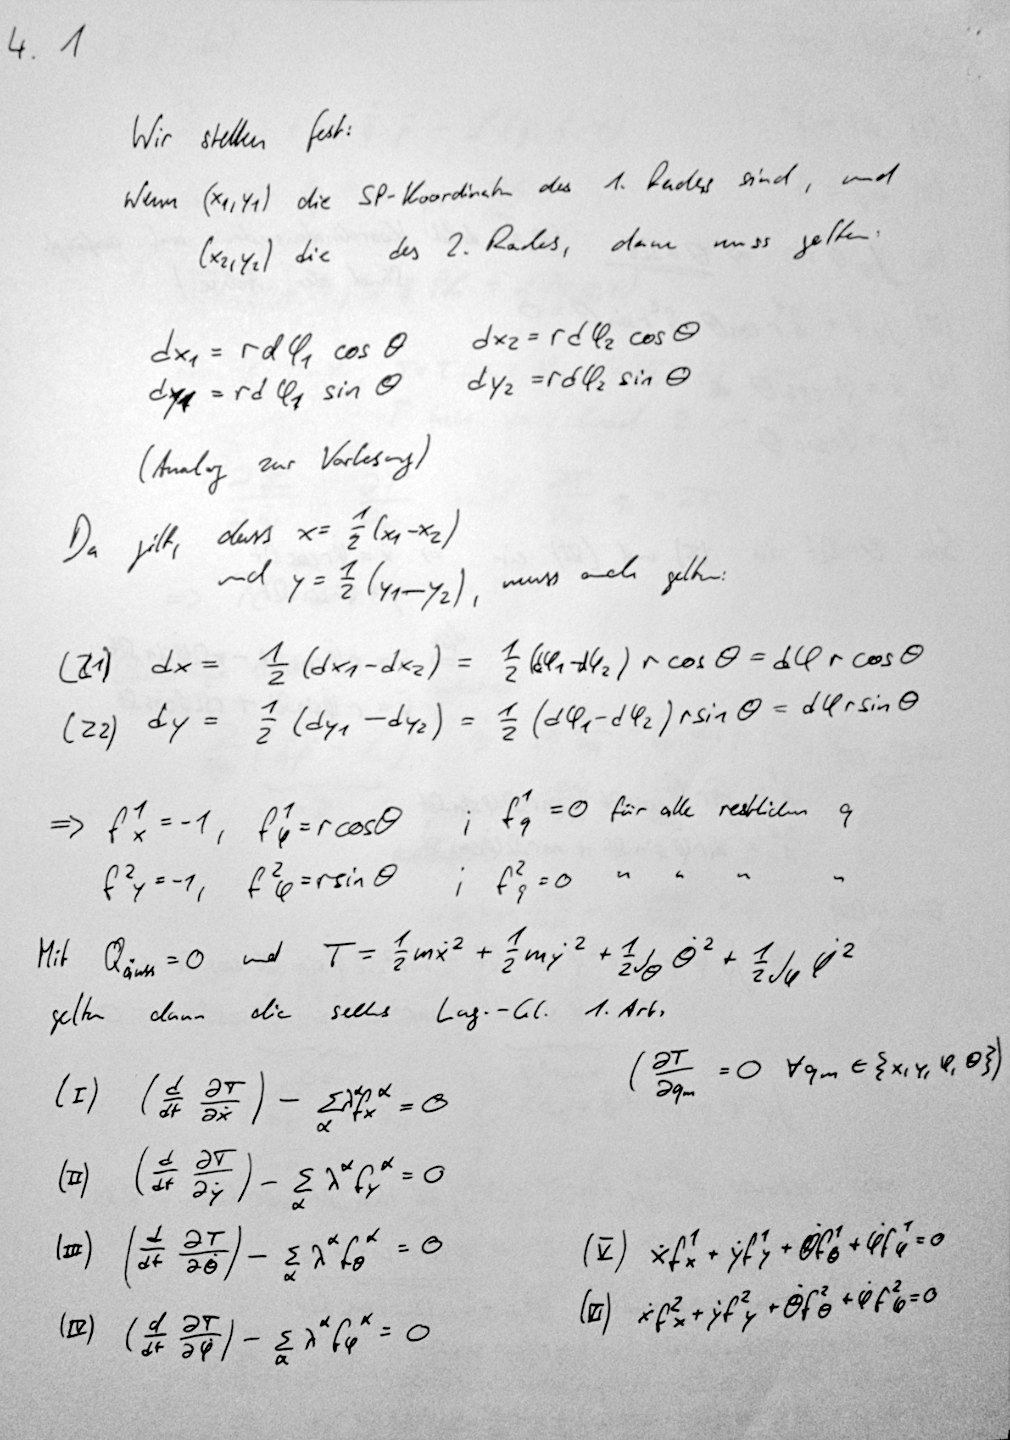 4. 1
Wir stellen fest:
Wenn (x₁,y₁) die SP-Koordinaten des 1. Rades sind, und
(x₂,y₂) die des 2. Rades, dann muss gelten:
dx₁ = r dφ₁ cos θ dx₂ = r dφ₂ cos θ
dy₁ = r dφ₁ sin θ dy₂ = r dφ₂ sin θ
(Analog zur Vorlesung)
Da gilt, dass x = 1/2 (x₁-x₂)
und y = 1/2 (y₁-y₂), muss auch gelten:
(Z1) dx = 1/2 (dx₁-dx₂) = 1/2 (dφ₁-dφ₂) r cos θ = dφ r cos θ
(Z2) dy = 1/2 (dy₁-dy₂) = 1/2 (dφ₁-dφ₂) r sin θ = dφ r sin θ
⇒ f¹ₓ = -1, f¹_φ = r cos θ ; f¹_q = 0 für alle restlichen q
f²_y = -1, f²_φ = r sin θ ; f²_q = 0 " " " "
Mit Q_äuss = 0 und T = 1/2 mẋ² + 1/2 mẏ² + 1/2 J_θ θ̇² + 1/2 J_φ φ̇²
gelten dann die sechs Lag.-Gl. 1. Art.
(∂T/∂q_m = 0 ∀ q_m ∈ {x, y, φ, θ})
(I) (d/dt ∂T/∂ẋ) - Σ_α λ^α f_x^α = 0
(II) (d/dt ∂T/∂ẏ) - Σ_α λ^α f_y^α = 0
(III) (d/dt ∂T/∂θ̇) - Σ_α λ^α f_θ^α = 0
(IV) (d/dt ∂T/∂φ̇) - Σ_α λ^α f_φ^α = 0
(V) ẋf¹_x + ẏf¹_y + θ̇f¹_θ + φ̇f¹_φ = 0
(VI) ẋf²_x + ẏf²_y + θ̇f²_θ + φ̇f²_φ = 0